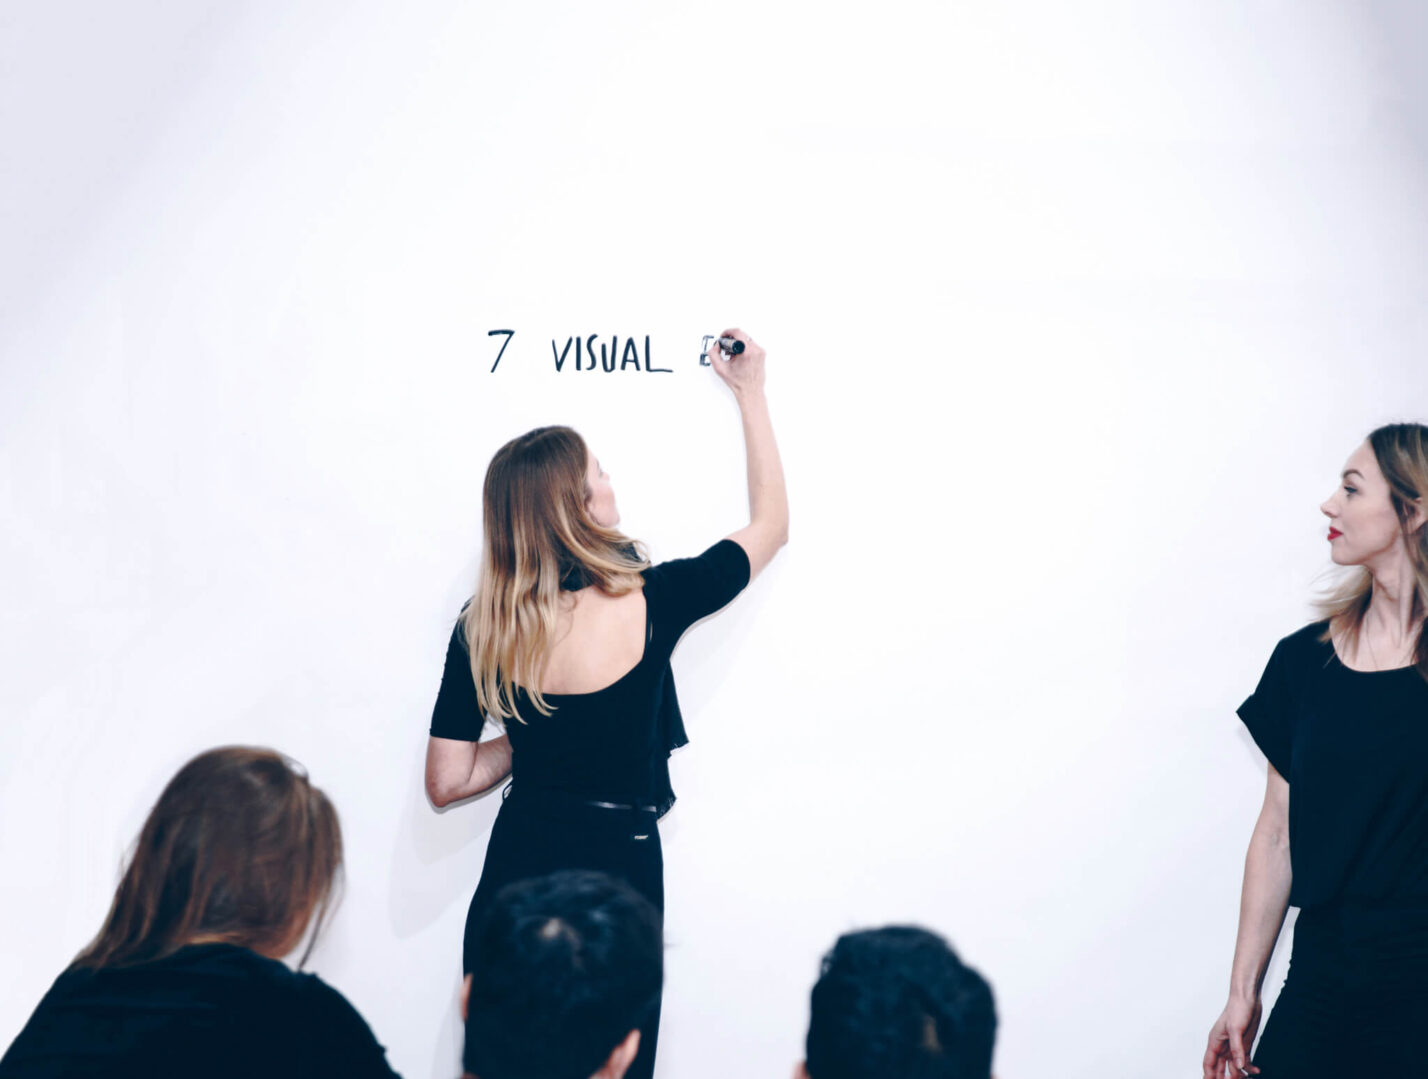 7 VISUAL